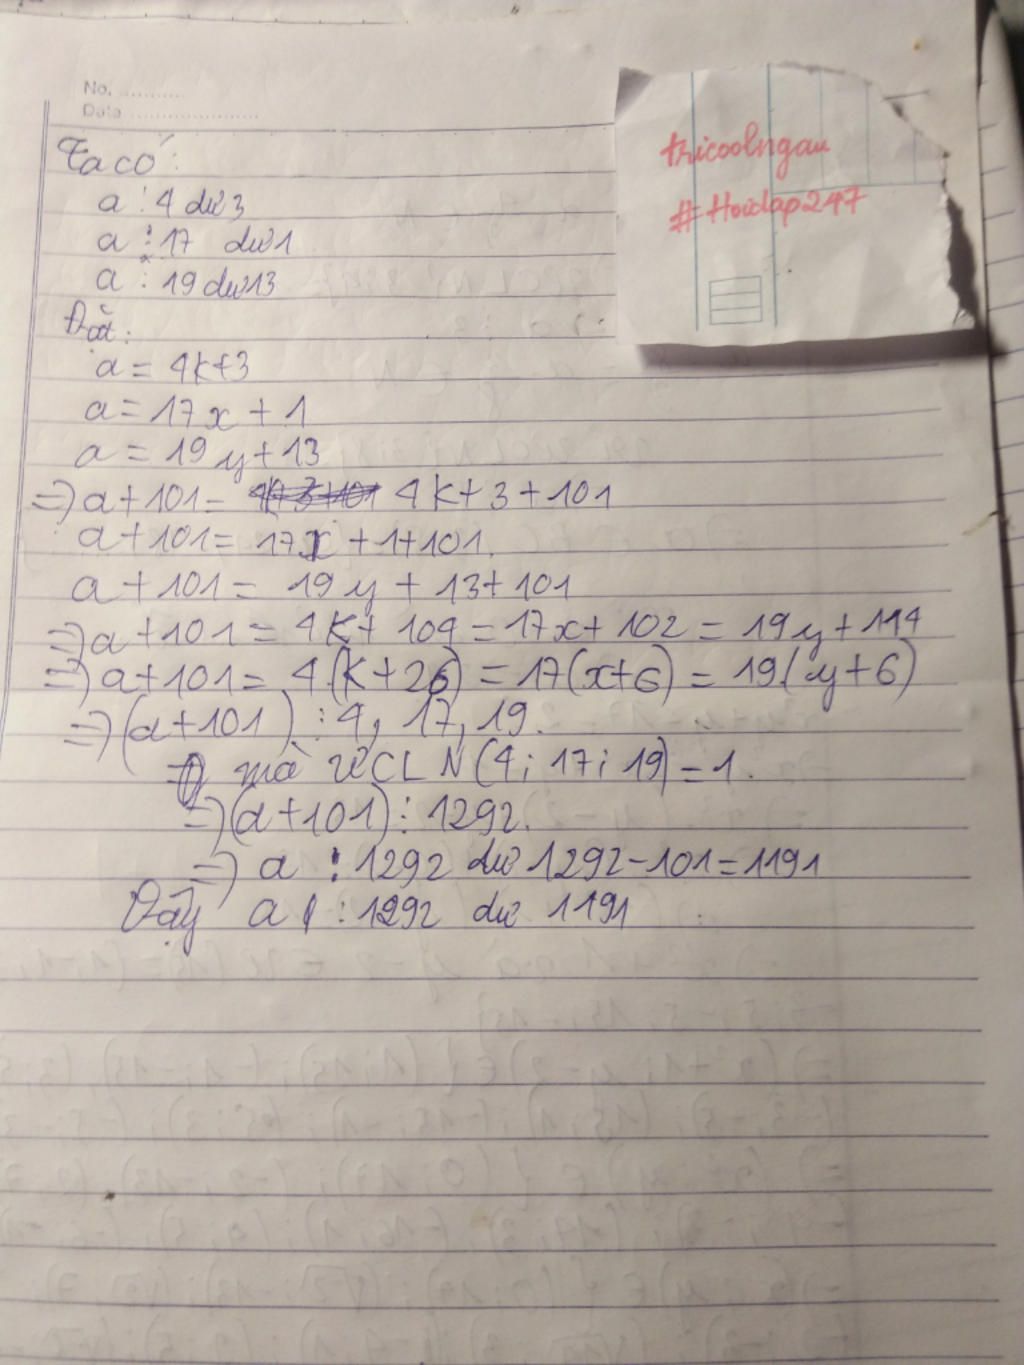 No. ............
Date ......................
Ta có:
a : 4 dư 3
a : 17 dư 1
a : 19 dư 13
Đặt:
a = 4k+3
a = 17x + 1
a = 19y+13
=> a+101 = 4k+3+101
a+101 = 17x +1+101.
a+101 = 19y + 13+101
=> a+101 = 4k+104 = 17x+102 = 19y+114
=> a+101 = 4.(k+26) = 17(x+6) = 19.(y+6)
=> (a+101) ⋮ 4, 17, 19.
mà ƯCLN(4; 17; 19) = 1.
=> (a+101) ⋮ 1292.
=> a : 1292 dư 1292-101=1191
Vậy a : 1292 dư 1191
tricoolngau
#Hoidap247